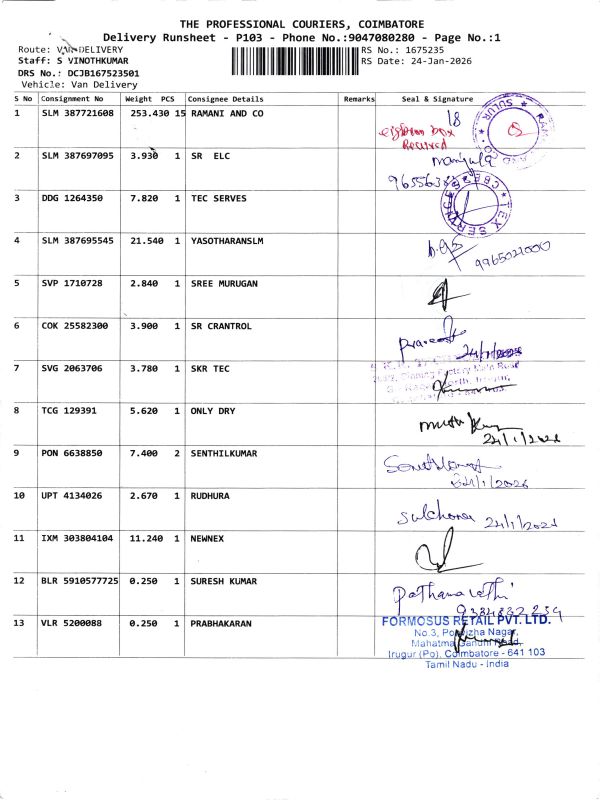 THE PROFESSIONAL COURIERS, COIMBATORE
Delivery Runsheet - P103 - Phone No.:9047080280 - Page No.:1
Route: VAN DELIVERY
RS No.: 1675235
Staff: S VINOTHKUMAR
RS Date: 24-Jan-2026
DRS No.: DCJB167523501
Vehicle: Van Delivery
S No Consignment No Weight PCS Consignee Details Remarks Seal & Signature
1 SLM 387721608 253.430 15 RAMANI AND CO 18
eighteen box
Received
SULUR
2 SLM 387697095 3.930 1 SR ELC
3 DDG 1264350 7.820 1 TEC SERVES
4 SLM 387695545 21.540 1 YASOTHARANSLM
9965021000
5 SVP 1710728 2.840 1 SREE MURUGAN
6 COK 25582300 3.900 1 SR CRANTROL
7 SVG 2063706 3.780 1 SKR TEC
8 TCG 129391 5.620 1 ONLY DRY
24/1/2026
9 PON 6638850 7.400 2 SENTHILKUMAR
24/1/2026
10 UPT 4134026 2.670 1 RUDHURA
24/1/2026
11 IXM 303804104 11.240 1 NEWNEX
12 BLR 5910577725 0.250 1 SURESH KUMAR
13 VLR 5200088 0.250 1 PRABHAKARAN
FORMOSUS RETAIL PVT. LTD.
No.3, Nagar,
Mahatma Gandhi Road,
Irugur (Po), Coimbatore - 641 103
Tamil Nadu - India